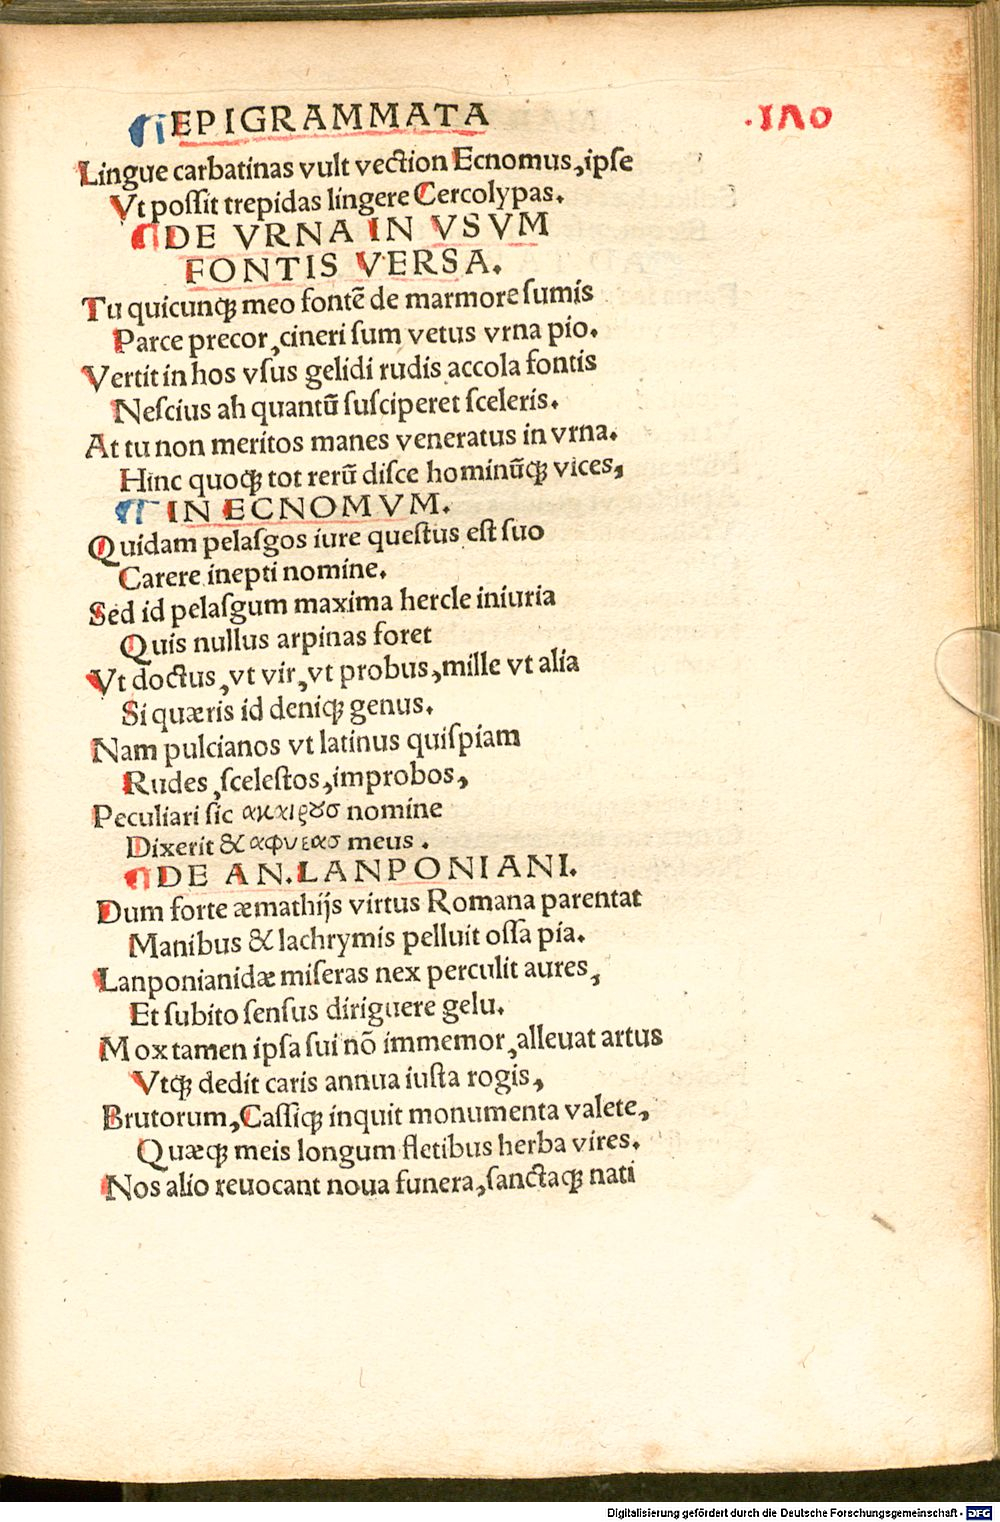 ¶EPIGRAMMATA .170
Lingue carbatinas vult vection Ecnomus, ipse
Vt poſſit trepidas lingere Cercolypas.
¶DE VRNA IN VSVM
FONTIS VERSA.
Tu quicunqꝫ meo fontē de marmore ſumis
Parce precor, cineri ſum vetus vrna pio.
Vertit in hos vſus gelidi rudis accola fontis
Neſcius ah quantū ſuſciperet ſceleris.
At tu non meritos manes veneratus in vrna.
Hinc quoqꝫ tot rerū diſce hominūqꝫ vices,
¶IN ECNOMVM.
Quidam pelaſgos iure queſtus eſt ſuo
Carere inepti nomine.
Sed id pelaſgum maxima hercle iniuria
Quis nullus arpinas foret
Vt doctus, vt vir, vt probus, mille vt alia
Si quæris id deniqꝫ genus.
Nam pulcianos vt latinus quiſpiam
Rudes, ſceleſtos, improbos,
Peculiari ſic ακαιρȣσ nomine
Dixerit & αφυεασ meus.
¶DE AN. LANPONIANI.
Dum forte æmathijs virtus Romana parentat
Manibus & lachrymis pelluit oſſa pia.
Lanponianidæ miſeras nex perculit aures,
Et ſubito ſenſus diriguere gelu.
Mox tamen ipſa ſui nō immemor, alleuat artus
Vtqꝫ dedit caris annua iuſta rogis,
Brutorum, Caſſiqꝫ inquit monumenta valete,
Quæqꝫ meis longum fletibus herba vires.
Nos alio reuocant noua funera, ſanctaqꝫ nati
Digitalisierung gefördert durch die Deutsche Forschungsgemeinschaft - DFG